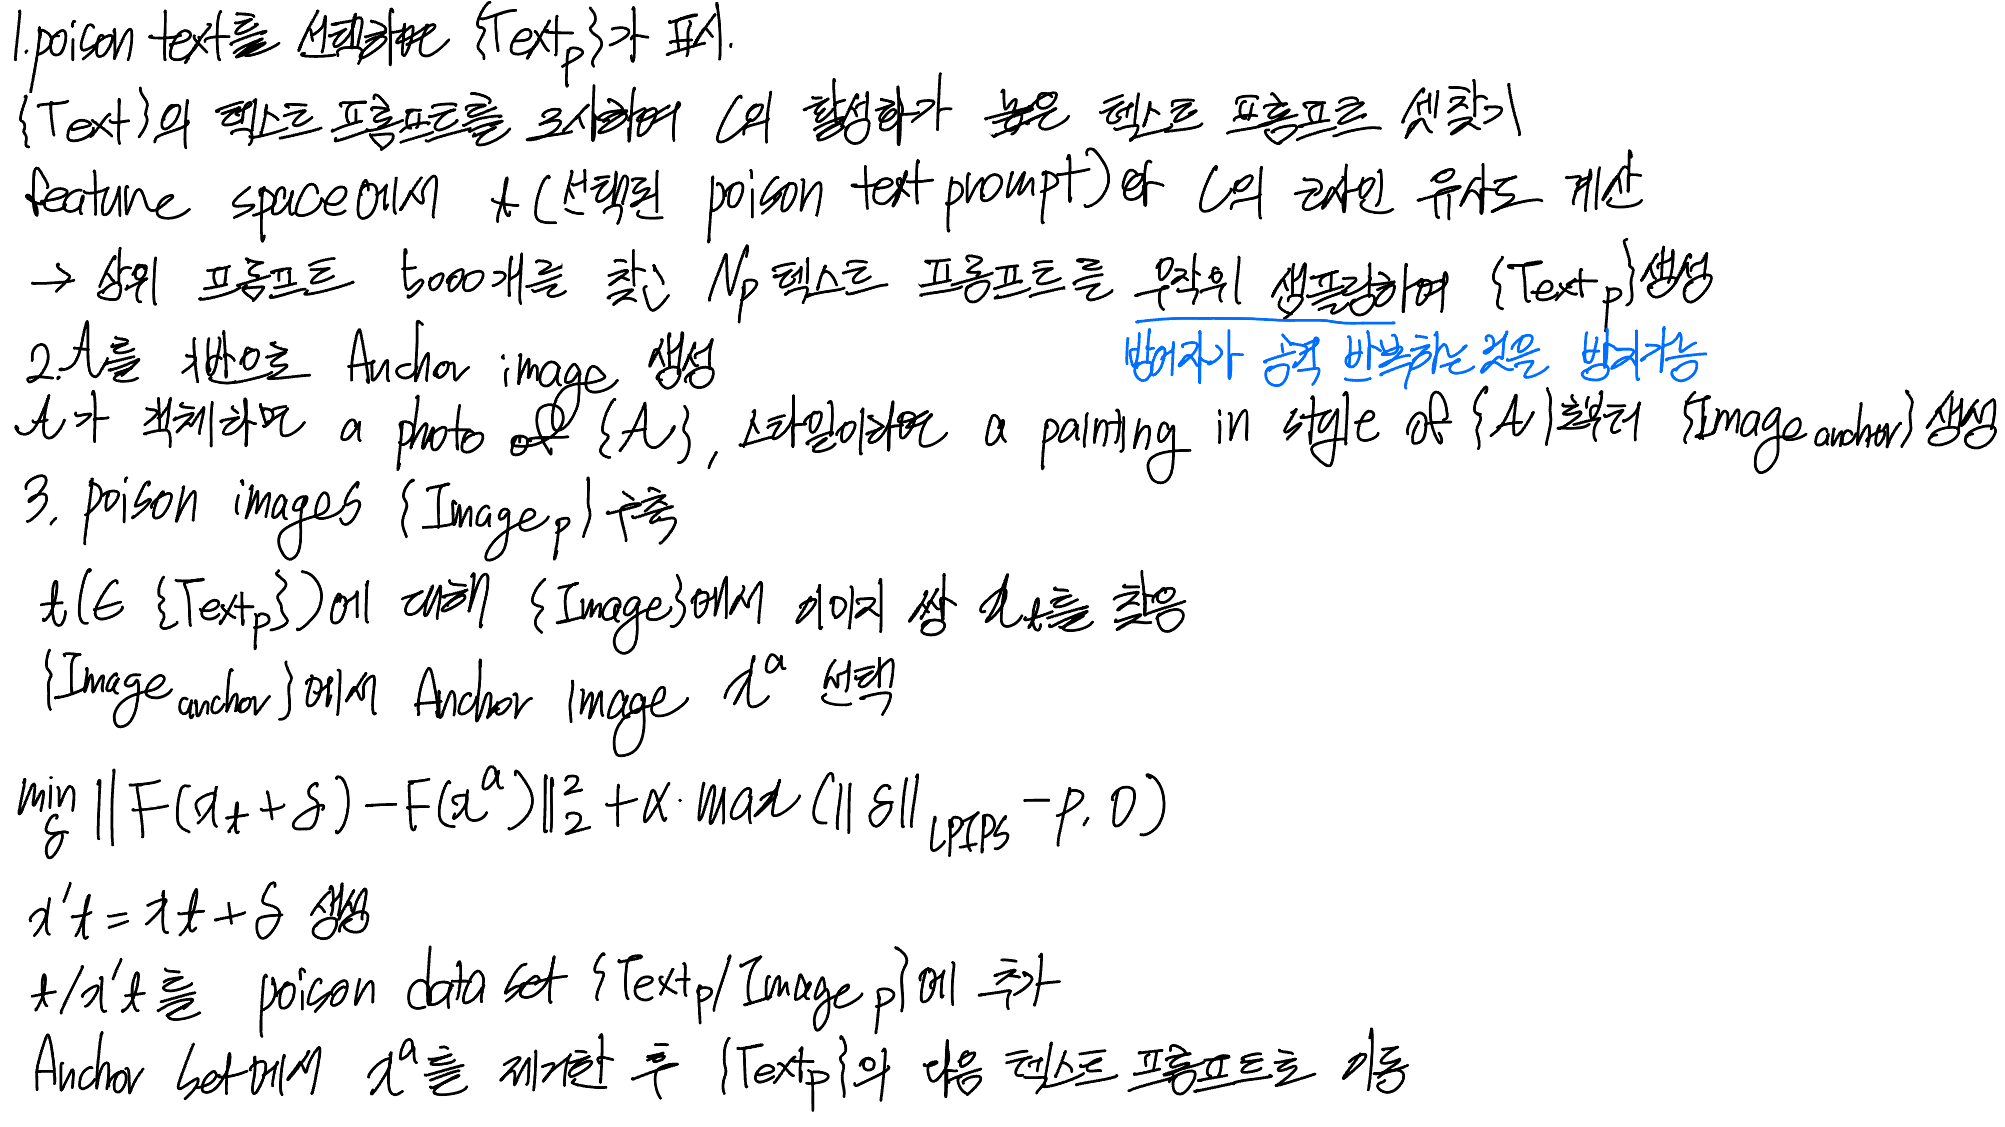 1. poison text를 선택하면 {Text_p}가 표시.
{Text}의 텍스트 프롬프트를 조사하여 C의 활성화가 높은 텍스트 프롬프트 셋찾기
feature space에서 t(선택된 poison text prompt)와 C의 코사인 유사도 계산
→ 상위 프롬프트 5000개를 찾고 N_p 텍스트 프롬프트를 무작위 샘플링하여 {Text_p}생성
방어자가 공격 반복하는 것을 방지가능
2. A를 기반으로 Anchor image 생성
A가 객체하면 a photo of {A}, 스타일이라면 a painting in style of {A}로부터 {Image_anchor}생성
3. poison images {Image_p} 구축
t(∈ {Text_p})에 대해 {Image}에서 이미지 쌍 x_t를 찾음
{Image_anchor}에서 Anchor image x^a 선택
min_δ ||F(x_t + δ) - F(x^a)||_2^2 + α · max(||δ||_LPIPS - p, 0)
x't = xt + δ 생성
t/x't를 poison data set {Text_p/Image_p}에 추가
Anchor set에서 x^a를 제거한 후 {Text_p}의 다음 텍스트 프롬프트로 이동